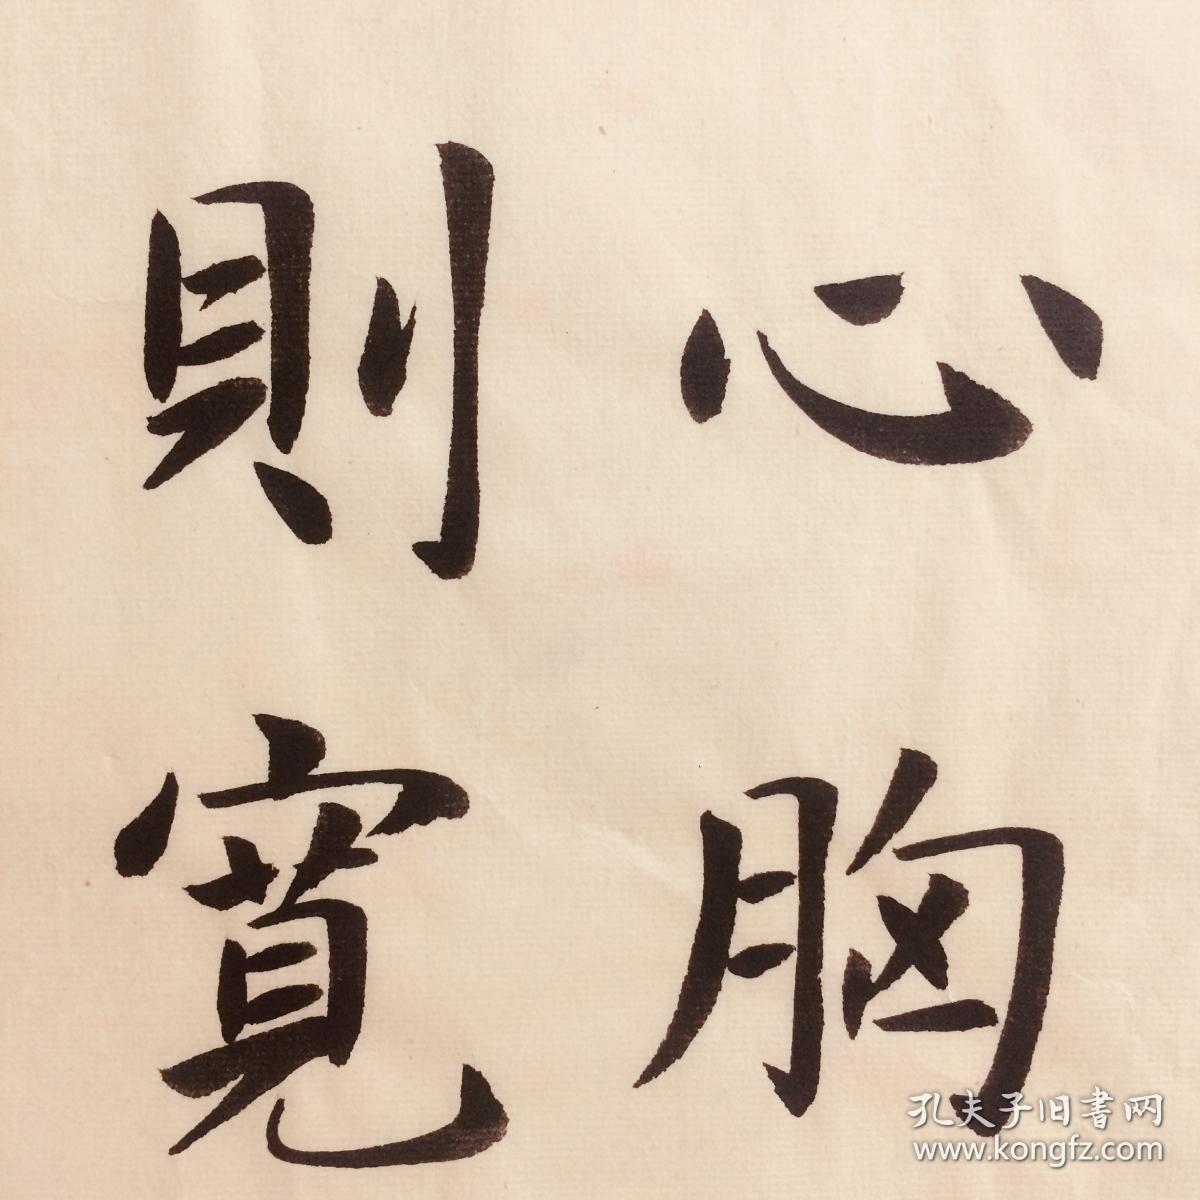 心胸
則寬
孔夫子旧書网
www.kongfz.com